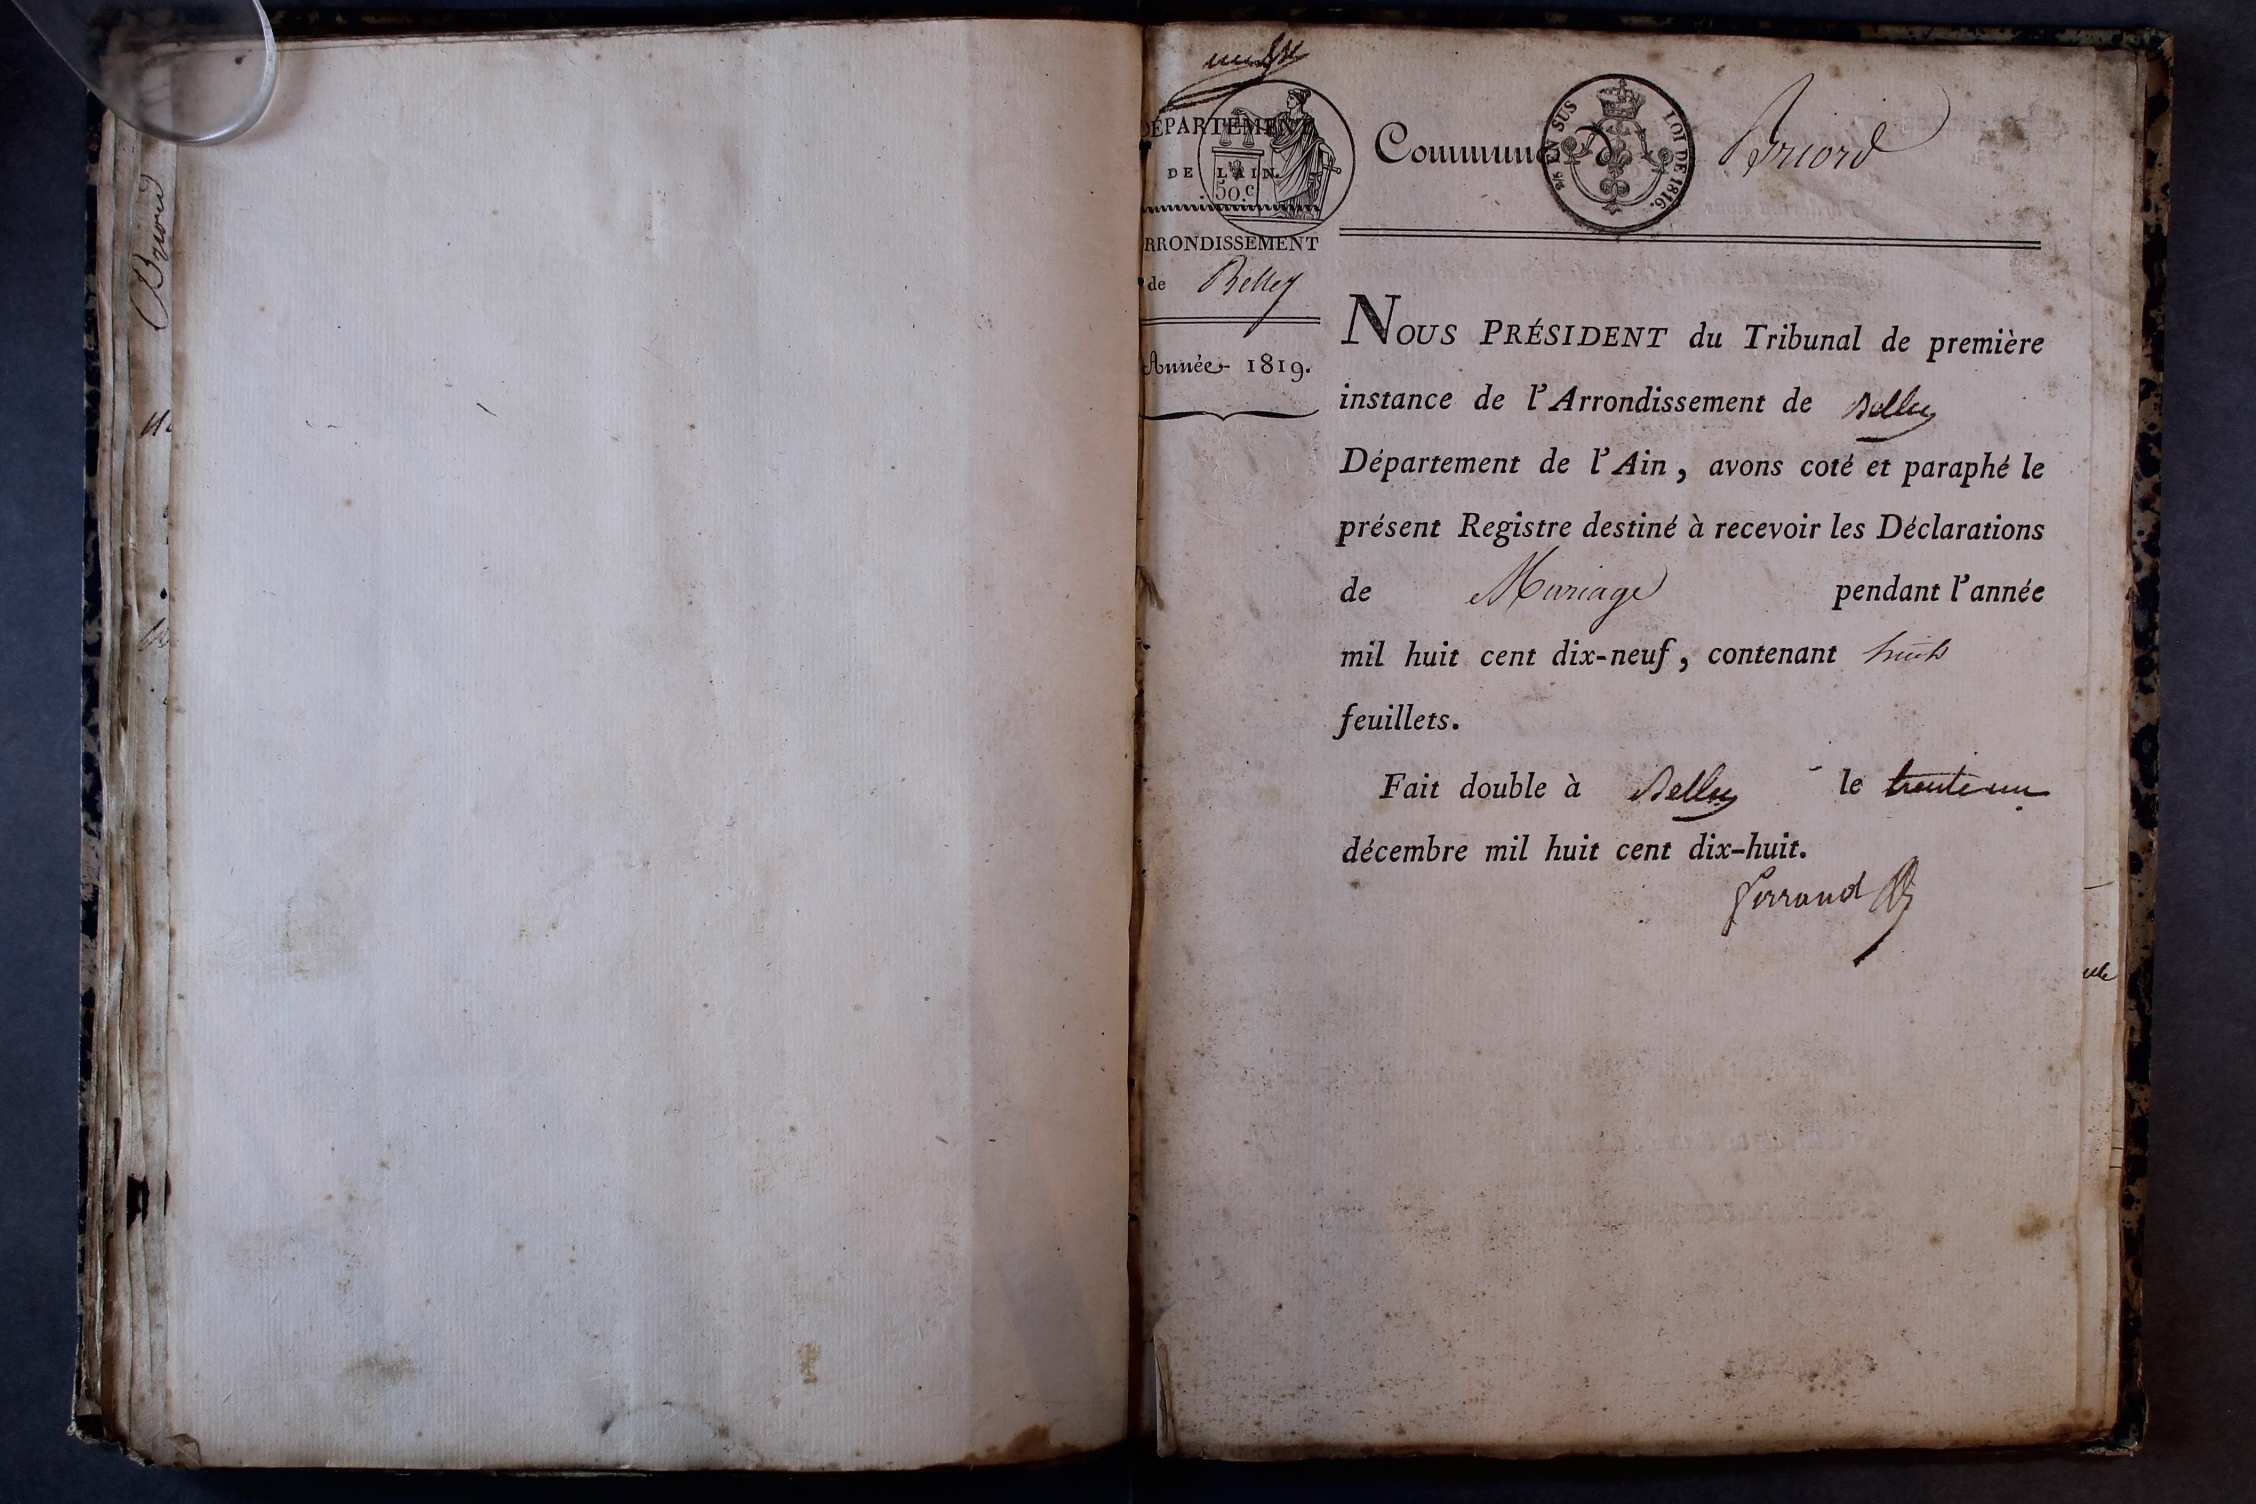 Briord
DÉPARTEMENT
DE L'AIN.
50.c
ARRONDISSEMENT
de Belley
Année 1819.
Commune de Briord
EN SUS
LOI DE 1816.
NOUS PRÉSIDENT du Tribunal de première
instance de l'Arrondissement de Belley
Département de l'Ain, avons coté et paraphé le
présent Registre destiné à recevoir les Déclarations
de Mariage pendant l'année
mil huit cent dix-neuf, contenant huit
feuillets.
Fait double à Belley le trente un
décembre mil huit cent dix-huit.